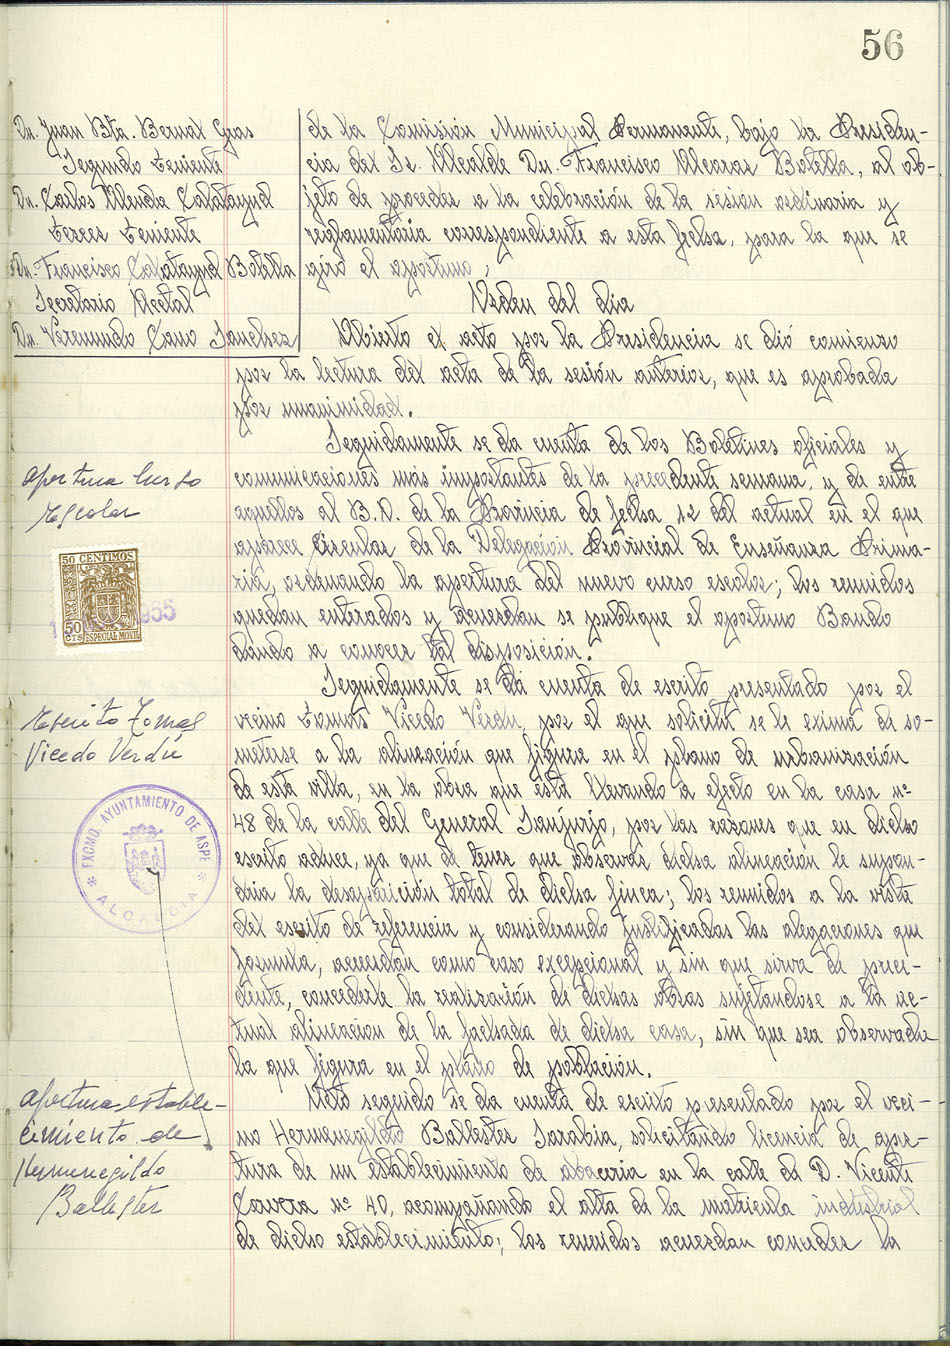 56
Dn. Juan Bta. Bernal Gras
Segundo Teniente
Dn. Carlos Alenda Calatayud
Tercer Teniente
Dn. Francisco Calatayud Botella
Secretario Acctal
Dn. Veremundo Cano Sanchez
de la Comisión Municipal Permanente, bajo la Presiden-
cia del Sr. Alcalde Dn. Francisco Alcaraz Botella, al ob-
jeto de proceder a la celebración de la sesion ordinaria y
reglamentaria correspondiente a esta fecha, para la que se
giró el oportuno,
Orden del dia
Abierto el acto por la Presidencia se dió comienzo
por la lectura del acta de la sesión anterior, que es aprobada
por unanimidad.
apertura Curso
Escolar
Seguidamente se da cuenta de los Boletines oficiales y
comunicaciones más importantes de la precedente semana, y de entre
aquellos al B.O. de la Provincia de fecha 12 del actual en el que
aparece Circular de la Delegacion Provincial de Enseñanza Prima-
ria, ordenando la apertura del nuevo curso escolar; los reunidos
quedan enterados y acuerdan se publique el oportuno Bando
dando a conocer tal disposición.
50 CENTIMOS
50 CTS ESPECIAL MOVIL
1955
Escrito Tomas
Vicedo Verdú
Seguidamente se dá cuenta de escrito presentado por el
vecino Tomás Vicedo Verdu, por el que solicita se le exima de so-
meterse a la alineación que figura en el plano de urbanización
de esta villa, en la obra que está llevando a efecto en la casa nº
48 de la calle del General Sanjurjo, por las razones que en dicho
escrito aduce, ya que de tener que observar dicha alineación le supon-
dria la desaparición total de dicha finca; los reunidos a la vista
del escrito de referencia y considerando justificadas las alegaciones que
formula, acuerdan como caso excepcional y sin que sirva de prece-
dente, concederle la realización de dichas obras sujetandose a la ac-
tual alineacion de la fachada de dicha casa, sin que sea observada
la que figura en el plano de población.
EXCMO. AYUNTAMIENTO DE ASPE
* ALCALDIA *
apertura estable-
cimiento de
Hermenegildo
Ballester
Acto seguido se da cuenta de escrito presentado por el veci-
no Hermenegildo Ballester Sarabia, solicitando licencia de aper-
tura de un establecimiento de abaceria en la calle de D. Vicente
Cervera nº 40, acompañando el alta de la matricula industrial
de dicho establecimiento; los reunidos acuerdan conceder la